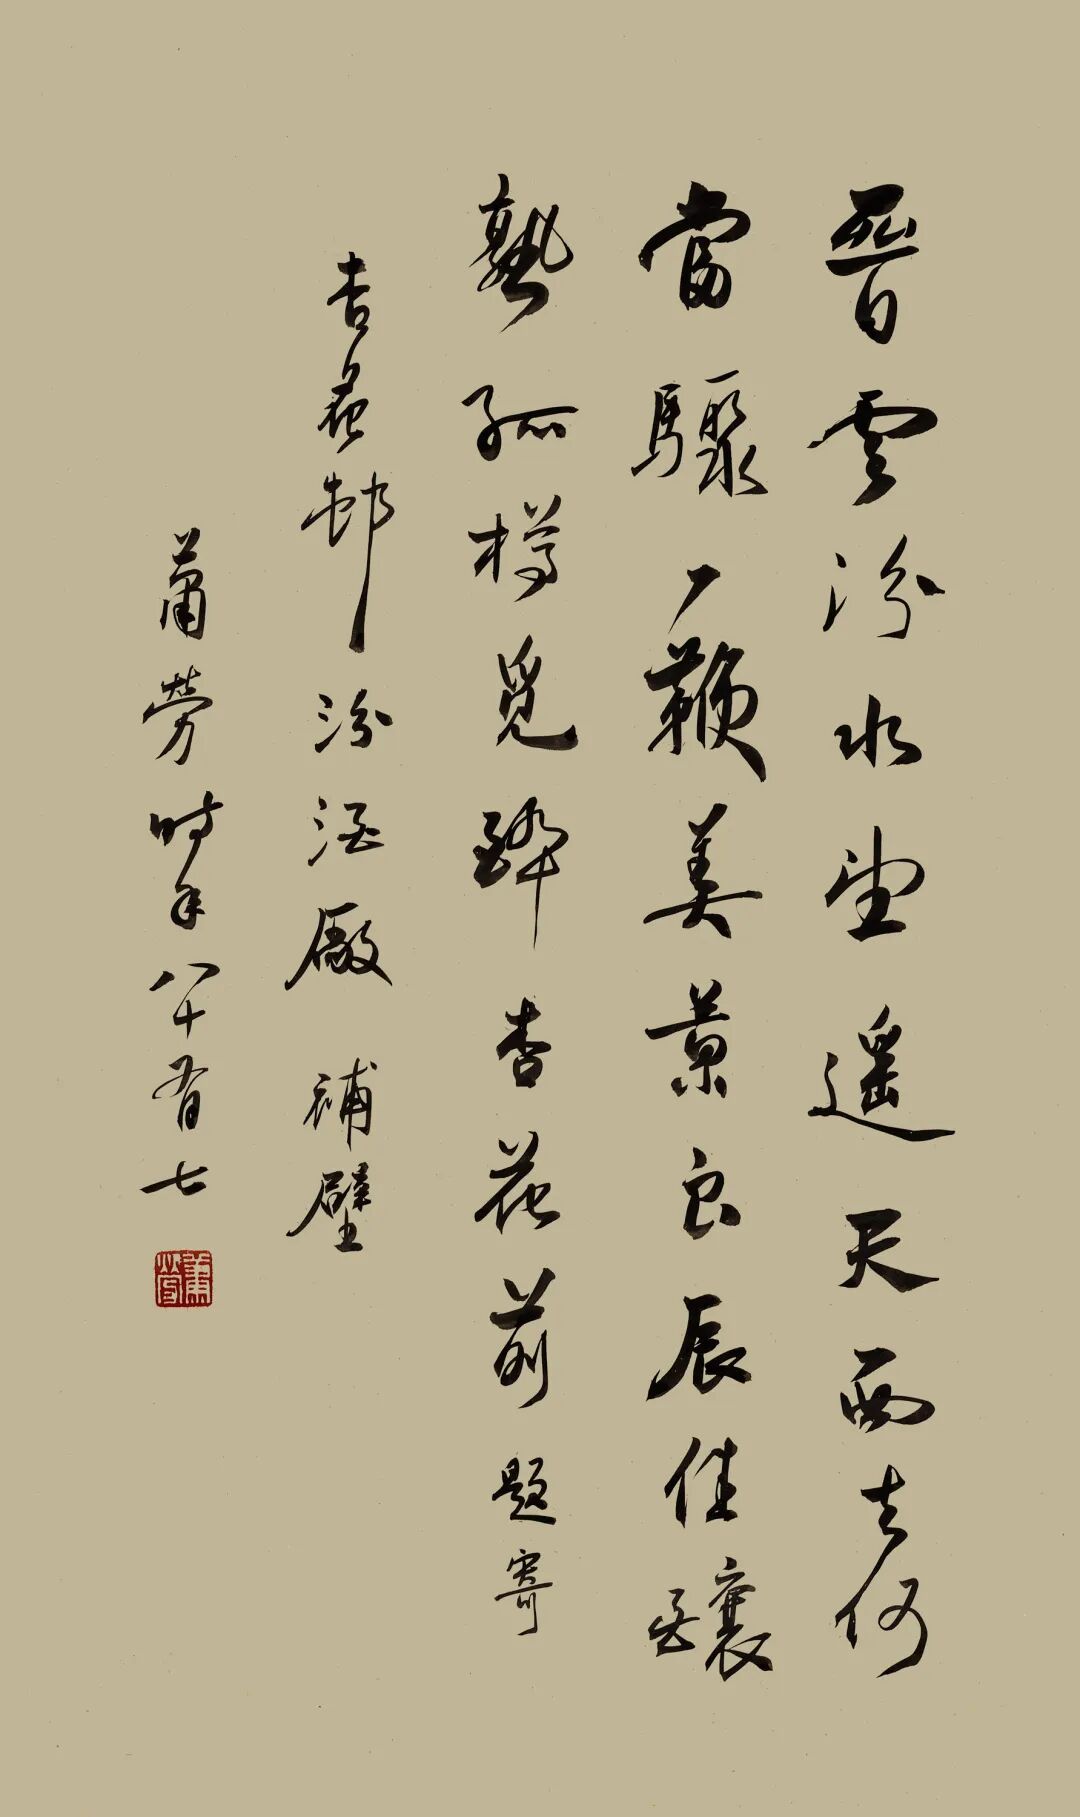 晉雲汾水望遥天西去何
當驟一鞭美景良辰佳釀
熟孤樽覓醉杏花前題寄
杏花邨汾酒廠補壁
蕭勞時年八十有七
蕭勞